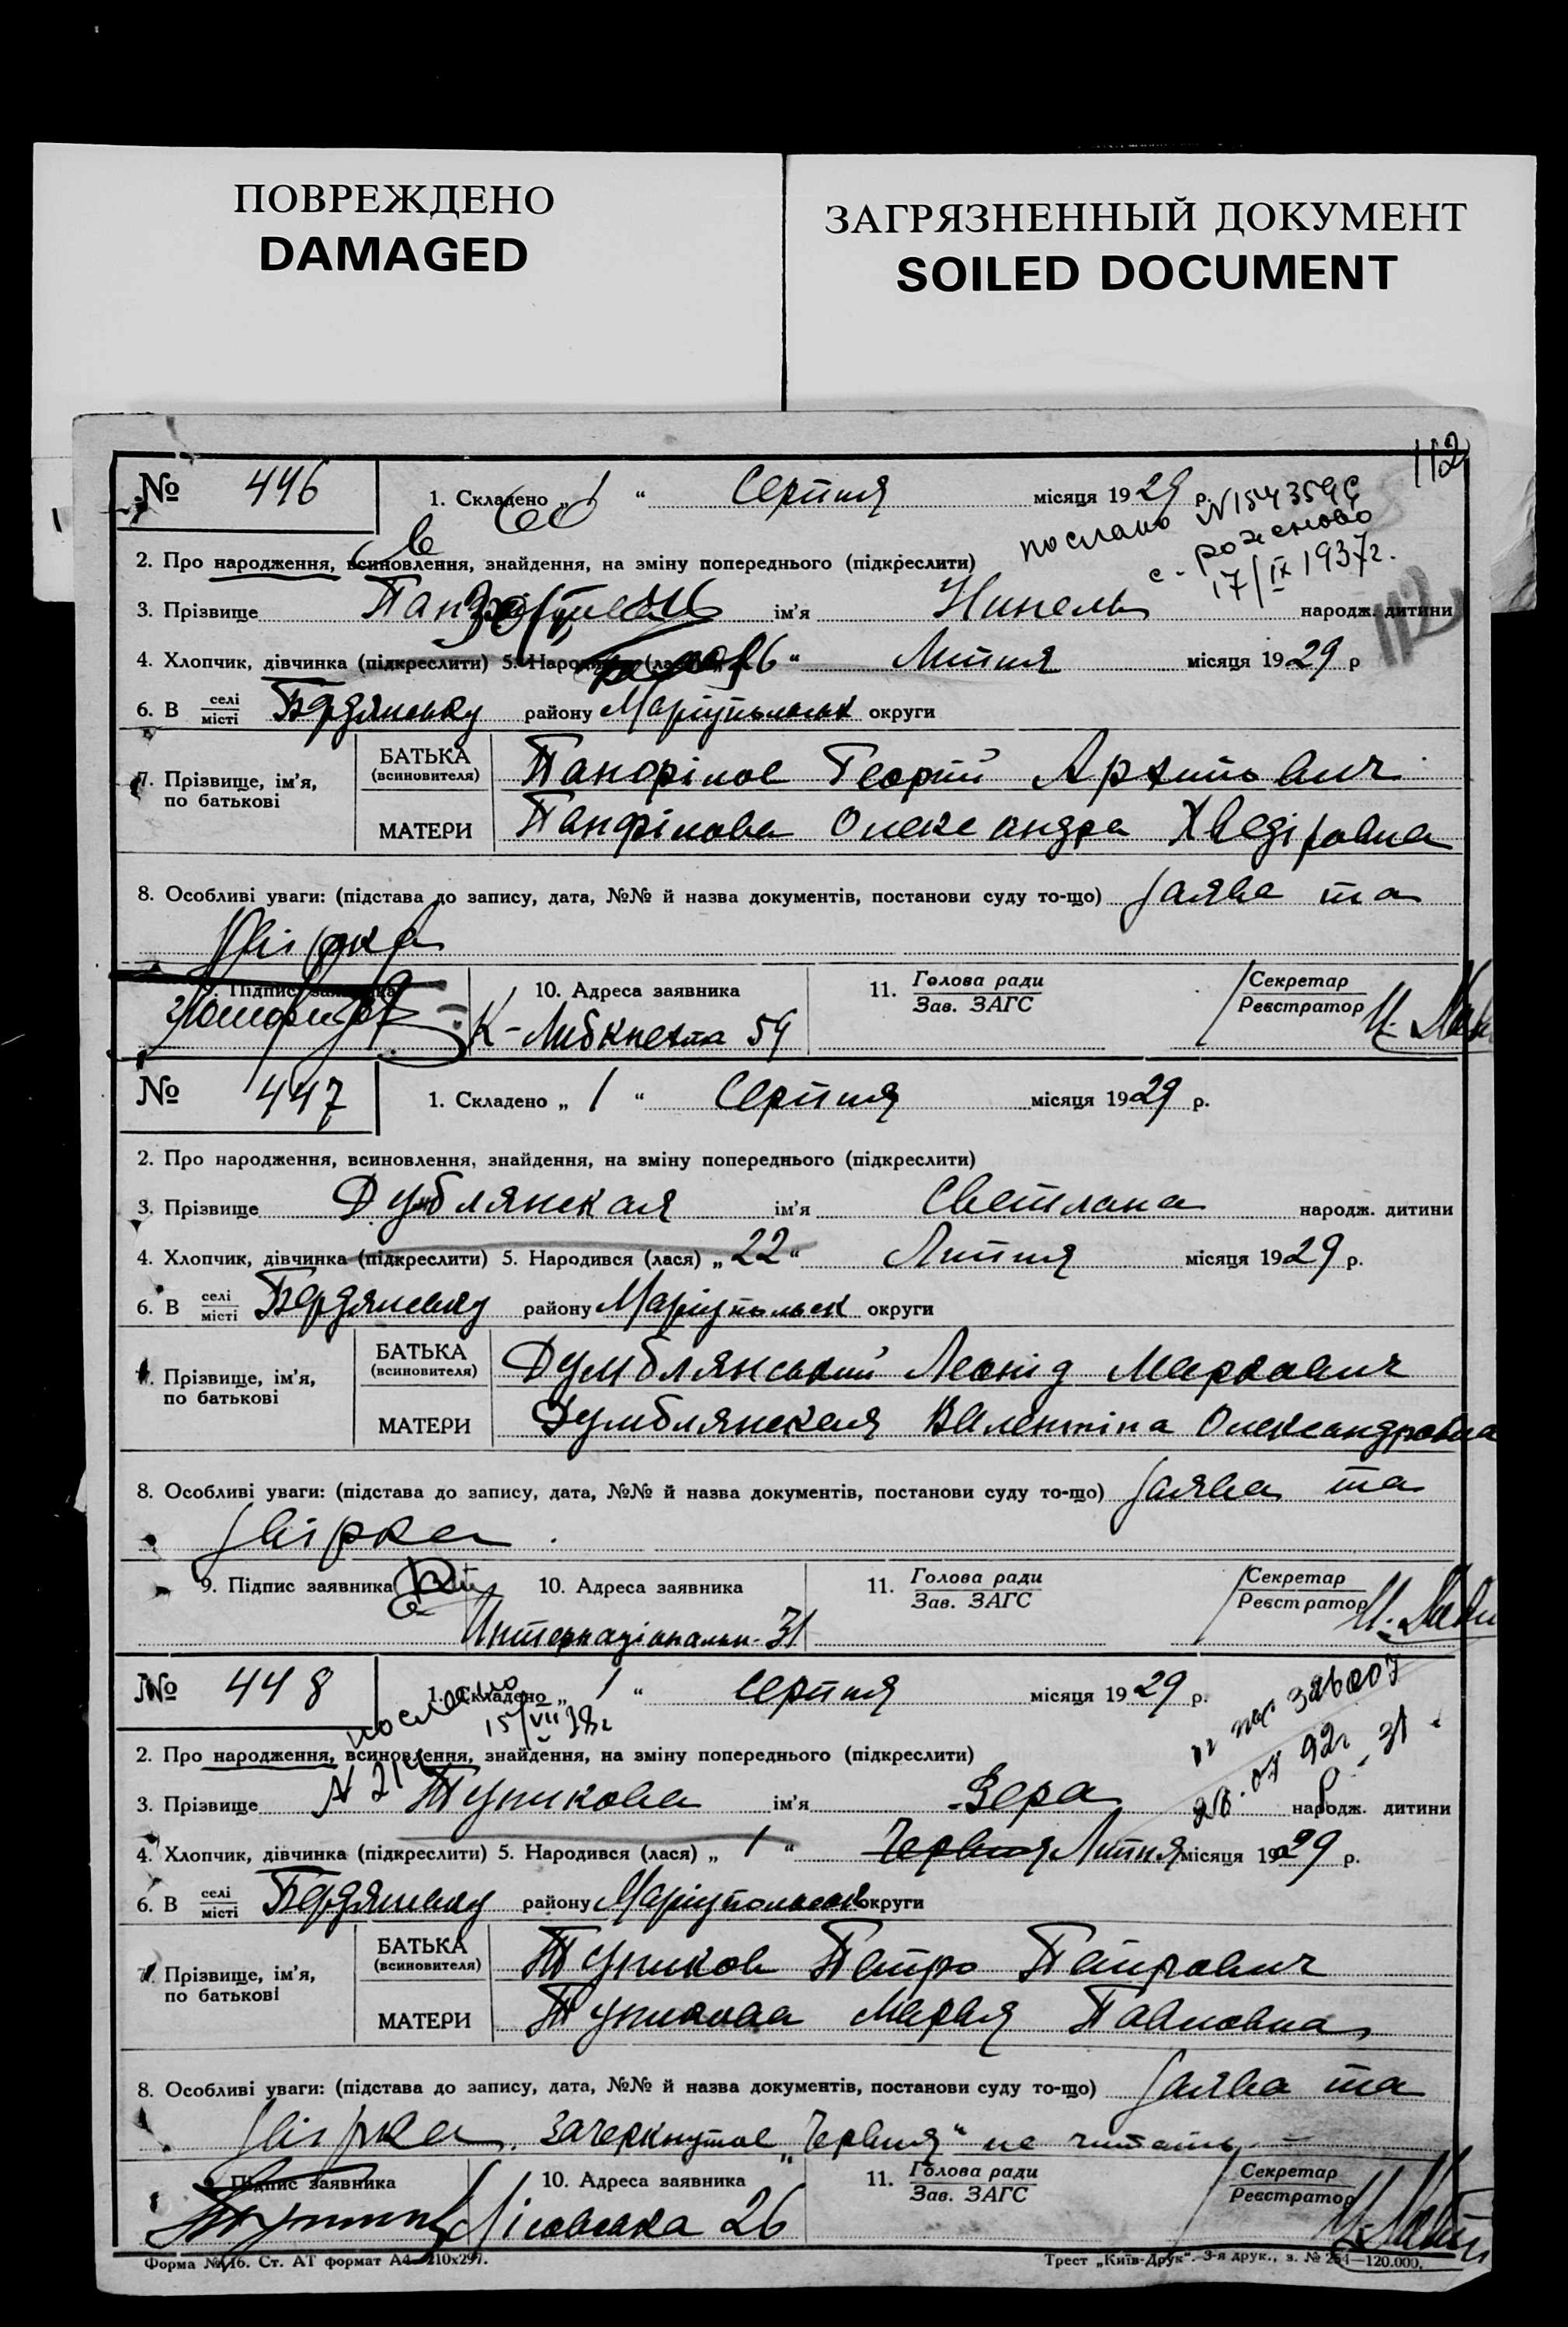 ПОВРЕЖДЕНО
DAMAGED
ЗАГРЯЗНЕННЫЙ ДОКУМЕНТ
SOILED DOCUMENT
112
№ 446
1. Складено „ 1 “ Серпня місяця 1929 р.
послано N
17/IX 1937г.
2. Про народження, всиновлення, знайдення, на зміну попереднього (підкреслити)
3. Прізвище ім'я Нинель народж. дитини
112
4. Хлопчик, дівчинка (підкреслити) 5. Народився (лася) 26 “ Липня місяця 1929 р
6. В селі місті Бердянську району Маріупольськ округи
7. Прізвище, ім'я, по батькові
БАТЬКА (всиновителя) Панфілов Георгій Архипович
МАТЕРИ Панфілова Олександра Хведіровна
8. Особливі уваги: (підстава до запису, дата, №№ й назва документів, постанови суду то-що) Заява та
Звірка
9. Підпис заявника
10. Адреса заявника
К-Либкнехта 59
11. Голова ради Зав. ЗАГС
Секретар Реєстратор
№ 447
1. Складено „ 1 “ Серпня місяця 1929 р.
2. Про народження, всиновлення, знайдення, на зміну попереднього (підкреслити)
3. Прізвище Думблянская ім'я Светлана народж. дитини
4. Хлопчик, дівчинка (підкреслити) 5. Народився (лася) „ 22 “ Липня місяця 1929 р.
6. В селі місті Бердянську району Маріупольськ округи
7. Прізвище, ім'я, по батькові
БАТЬКА (всиновителя) Думблянський Леонід Маркович
МАТЕРИ Думблянская Валентіна Олександровна
8. Особливі уваги: (підстава до запису, дата, №№ й назва документів, постанови суду то-що) Заява та
Звірка.
9. Підпис заявника
10. Адреса заявника
Интернаціональн. 31
11. Голова ради Зав. ЗАГС
Секретар Реєстратор
№ 448
1. Складено „ 1 “ Серпня місяця 1929 р.
послано
15/VII 38г
2. Про народження, всиновлення, знайдення, на зміну попереднього (підкреслити)
3. Прізвище Тупикова ім'я Вера народж. дитини
4. Хлопчик, дівчинка (підкреслити) 5. Народився (лася) „ 1 “ Червня Липня місяця 1929 р.
6. В селі місті Бердянську району Маріупольськ округи
7. Прізвище, ім'я, по батькові
БАТЬКА (всиновителя) Тупиков Петро Петрович
МАТЕРИ Тупикова Марья Павловна
8. Особливі уваги: (підстава до запису, дата, №№ й назва документів, постанови суду то-що) Заява та
Звірка. Зачеркнутое „Червня“ не читать –
9. Підпис заявника
10. Адреса заявника
26
11. Голова ради Зав. ЗАГС
Секретар Реєстратор
Форма № 16. Ст. АТ формат А4—210х297.
Трест „Київ-Друк“. 3-я друк., з. № 254—120.000.